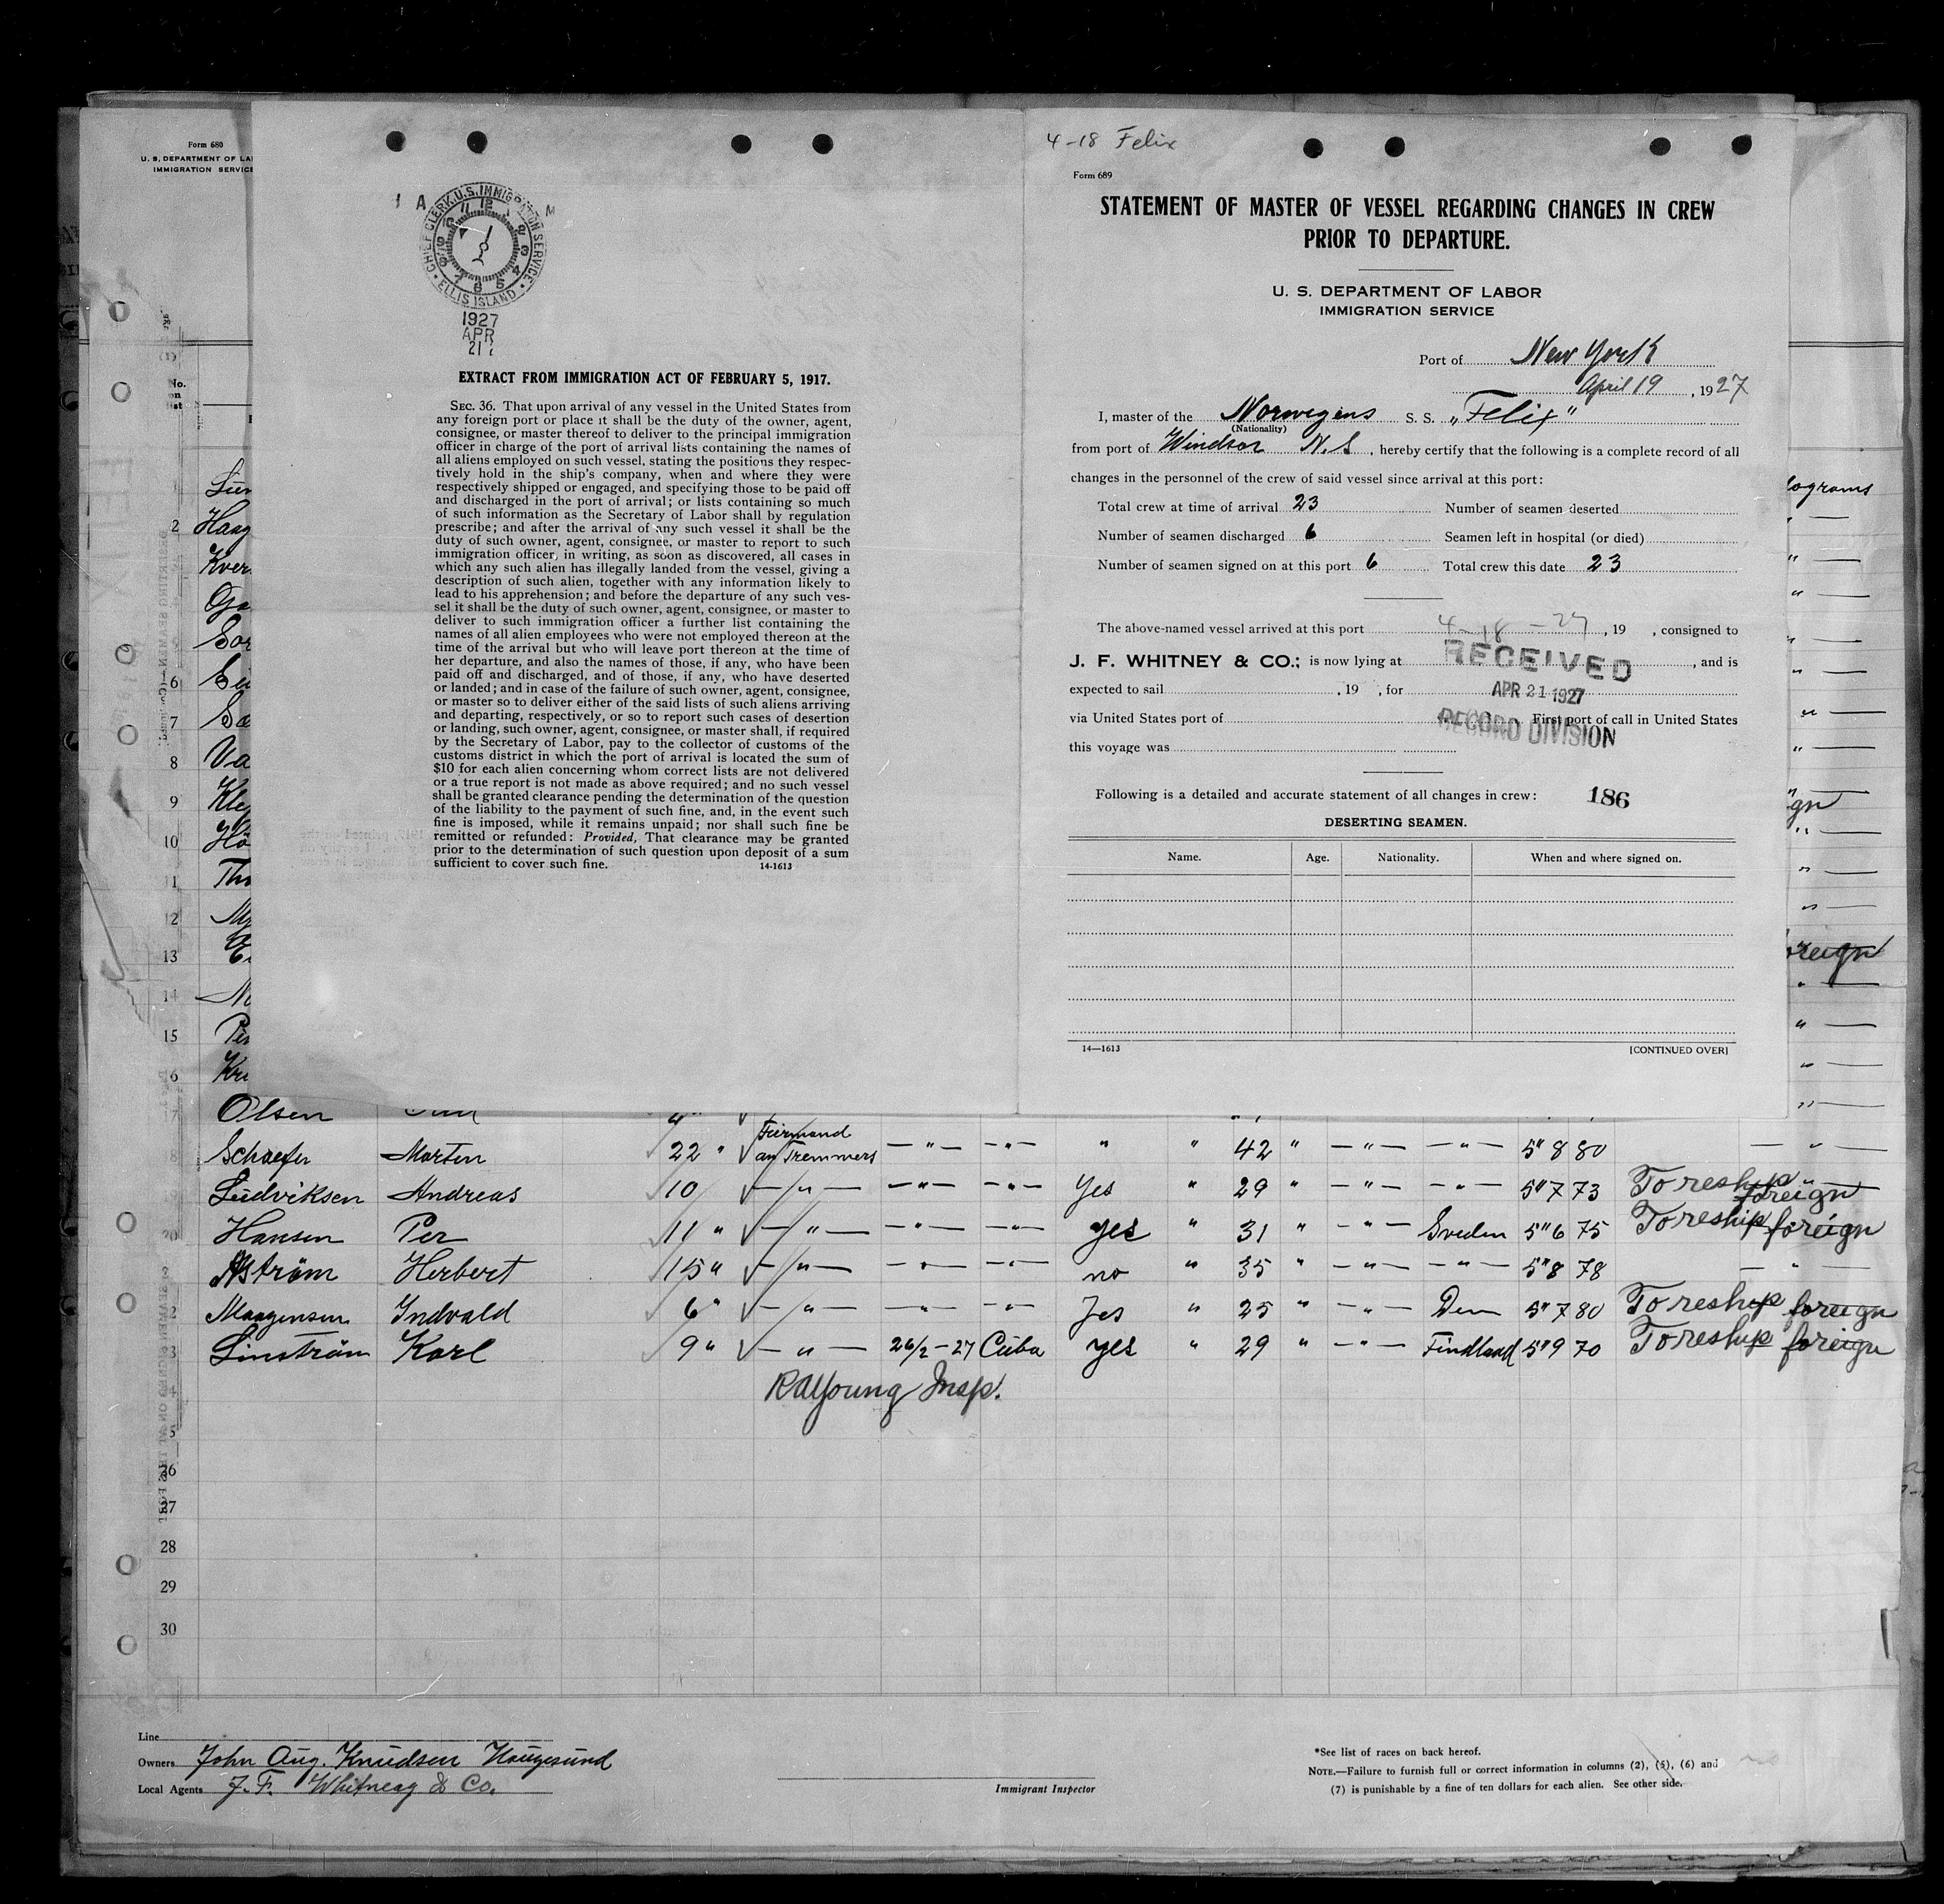 Form 680
U. S. DEPARTMENT OF LA
IMMIGRATION SERVICE
No.
on
list
CHIEF CLERK, U.S. IMMIGRATION SERVICE
ELLIS ISLAND
1927
APR
21
EXTRACT FROM IMMIGRATION ACT OF FEBRUARY 5, 1917.
SEC. 36. That upon arrival of any vessel in the United States from
any foreign port or place it shall be the duty of the owner, agent,
consignee, or master thereof to deliver to the principal immigration
officer in charge of the port of arrival lists containing the names of
all aliens employed on such vessel, stating the positions they respec-
tively hold in the ship's company, when and where they were
respectively shipped or engaged, and specifying those to be paid off
and discharged in the port of arrival; or lists containing so much
of such information as the Secretary of Labor shall by regulation
prescribe; and after the arrival of any such vessel it shall be the
duty of such owner, agent, consignee, or master to report to such
immigration officer, in writing, as soon as discovered, all cases in
which any such alien has illegally landed from the vessel, giving a
description of such alien, together with any information likely to
lead to his apprehension; and before the departure of any such ves-
sel it shall be the duty of such owner, agent, consignee, or master to
deliver to such immigration officer a further list containing the
names of all alien employees who were not employed thereon at the
time of the arrival but who will leave port thereon at the time of
her departure, and also the names of those, if any, who have been
paid off and discharged, and of those, if any, who have deserted
or landed; and in case of the failure of such owner, agent, consignee,
or master so to deliver either of the said lists of such aliens arriving
and departing, respectively, or so to report such cases of desertion
or landing, such owner, agent, consignee, or master shall, if required
by the Secretary of Labor, pay to the collector of customs of the
customs district in which the port of arrival is located the sum of
$10 for each alien concerning whom correct lists are not delivered
or a true report is not made as above required; and no such vessel
shall be granted clearance pending the determination of the question
of the liability to the payment of such fine, and, in the event such
fine is imposed, while it remains unpaid; nor shall such fine be
remitted or refunded: Provided, That clearance may be granted
prior to the determination of such question upon deposit of a sum
sufficient to cover such fine. 14-1613
4-18 Felix
Form 689
STATEMENT OF MASTER OF VESSEL REGARDING CHANGES IN CREW
PRIOR TO DEPARTURE.
U. S. DEPARTMENT OF LABOR
IMMIGRATION SERVICE
Port of New York
April 19, 1927
I, master of the Norwegens S. S. "Felix"
(Nationality)
from port of Windsor N.S, hereby certify that the following is a complete record of all
changes in the personnel of the crew of said vessel since arrival at this port:
Total crew at time of arrival 23 Number of seamen deserted
Number of seamen discharged 6 Seamen left in hospital (or died)
Number of seamen signed on at this port 6 Total crew this date 23
The above-named vessel arrived at this port 4-18-27, 19 , consigned to
J. F. WHITNEY & CO.; is now lying at , and is
RECEIVED
expected to sail , 19 , for
APR 21 1927
via United States port of First port of call in United States
RECORD DIVISION
this voyage was
Following is a detailed and accurate statement of all changes in crew: 186
DESERTING SEAMEN.
Name. Age. Nationality. When and where signed on.
14—1613 [CONTINUED OVER]
2 Haag
6
7
8 Va
9 Kle
10 Hö
11 Th
12 My
13
14
15 Per
16 Kri
Olsen
Schaefer Morten 22 " Fiermand an Tremmers — " — — " — " " 42 " — " — — " — 5" 8 80 — " —
Ludviksen Andreas 10 — " — — " — — " — Yes " 29 " — " — — " — 5" 7 73 To reship foreign
20 Hansen Per 11 " — " — — " — — " — yes " 31 " — " — Sveden 5" 6 75 To reship foreign
Aström Herbert 15 " — " — — " — — " — no " 35 " — " — — " — 5" 8 78 — " —
Maagensen Indvald 6 " — " — — " — — " — Jes " 25 " — " — Den 5" 7 80 To reship foreign
Linström Karl 9 " — " — 26/2-27 Cuba yes " 29 " — " — Findland 5" 9 70 To reship foreign
RA Young Insp.
26
27
28
29
30
Line
Owners John Aug. Knudsen Haugesund
Local Agents J. F. Whitneag & Co.
Immigrant Inspector
*See list of races on back hereof.
NOTE.—Failure to furnish full or correct information in columns (2), (5), (6) and
(7) is punishable by a fine of ten dollars for each alien. See other side.